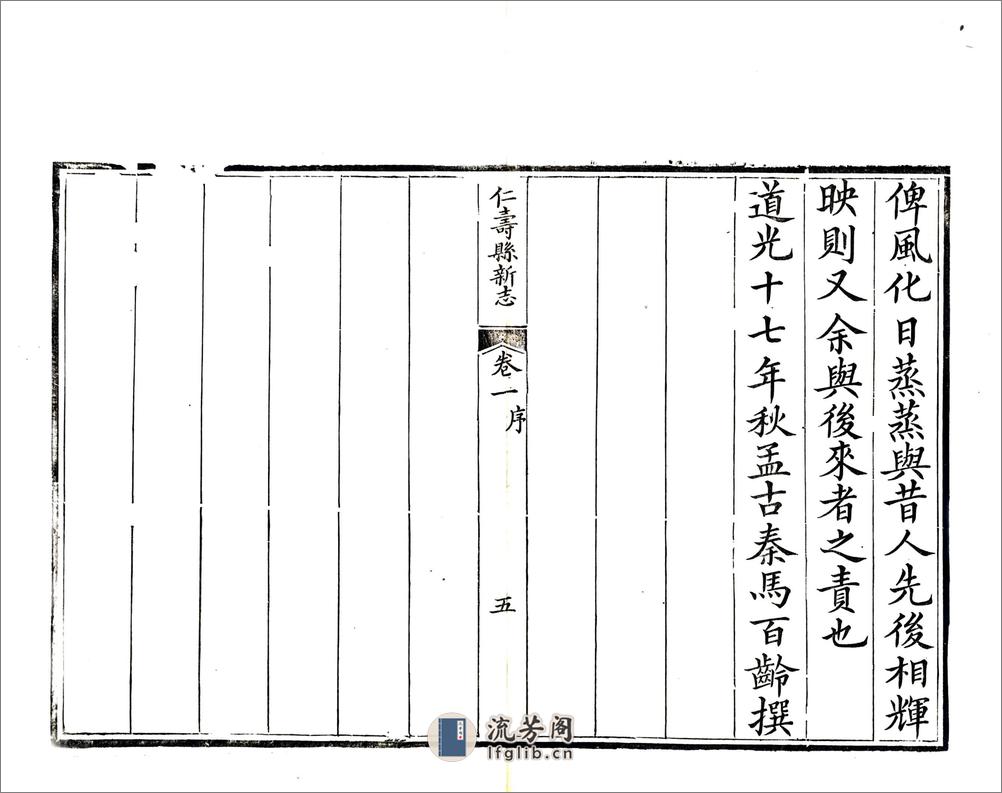 俾風化日蒸蒸與昔人先後相輝
映則又余與後來者之責也
道光十七年秋孟古秦馬百齡撰
仁壽縣新志
卷一
序
五
流芳阁
lfglib.cn